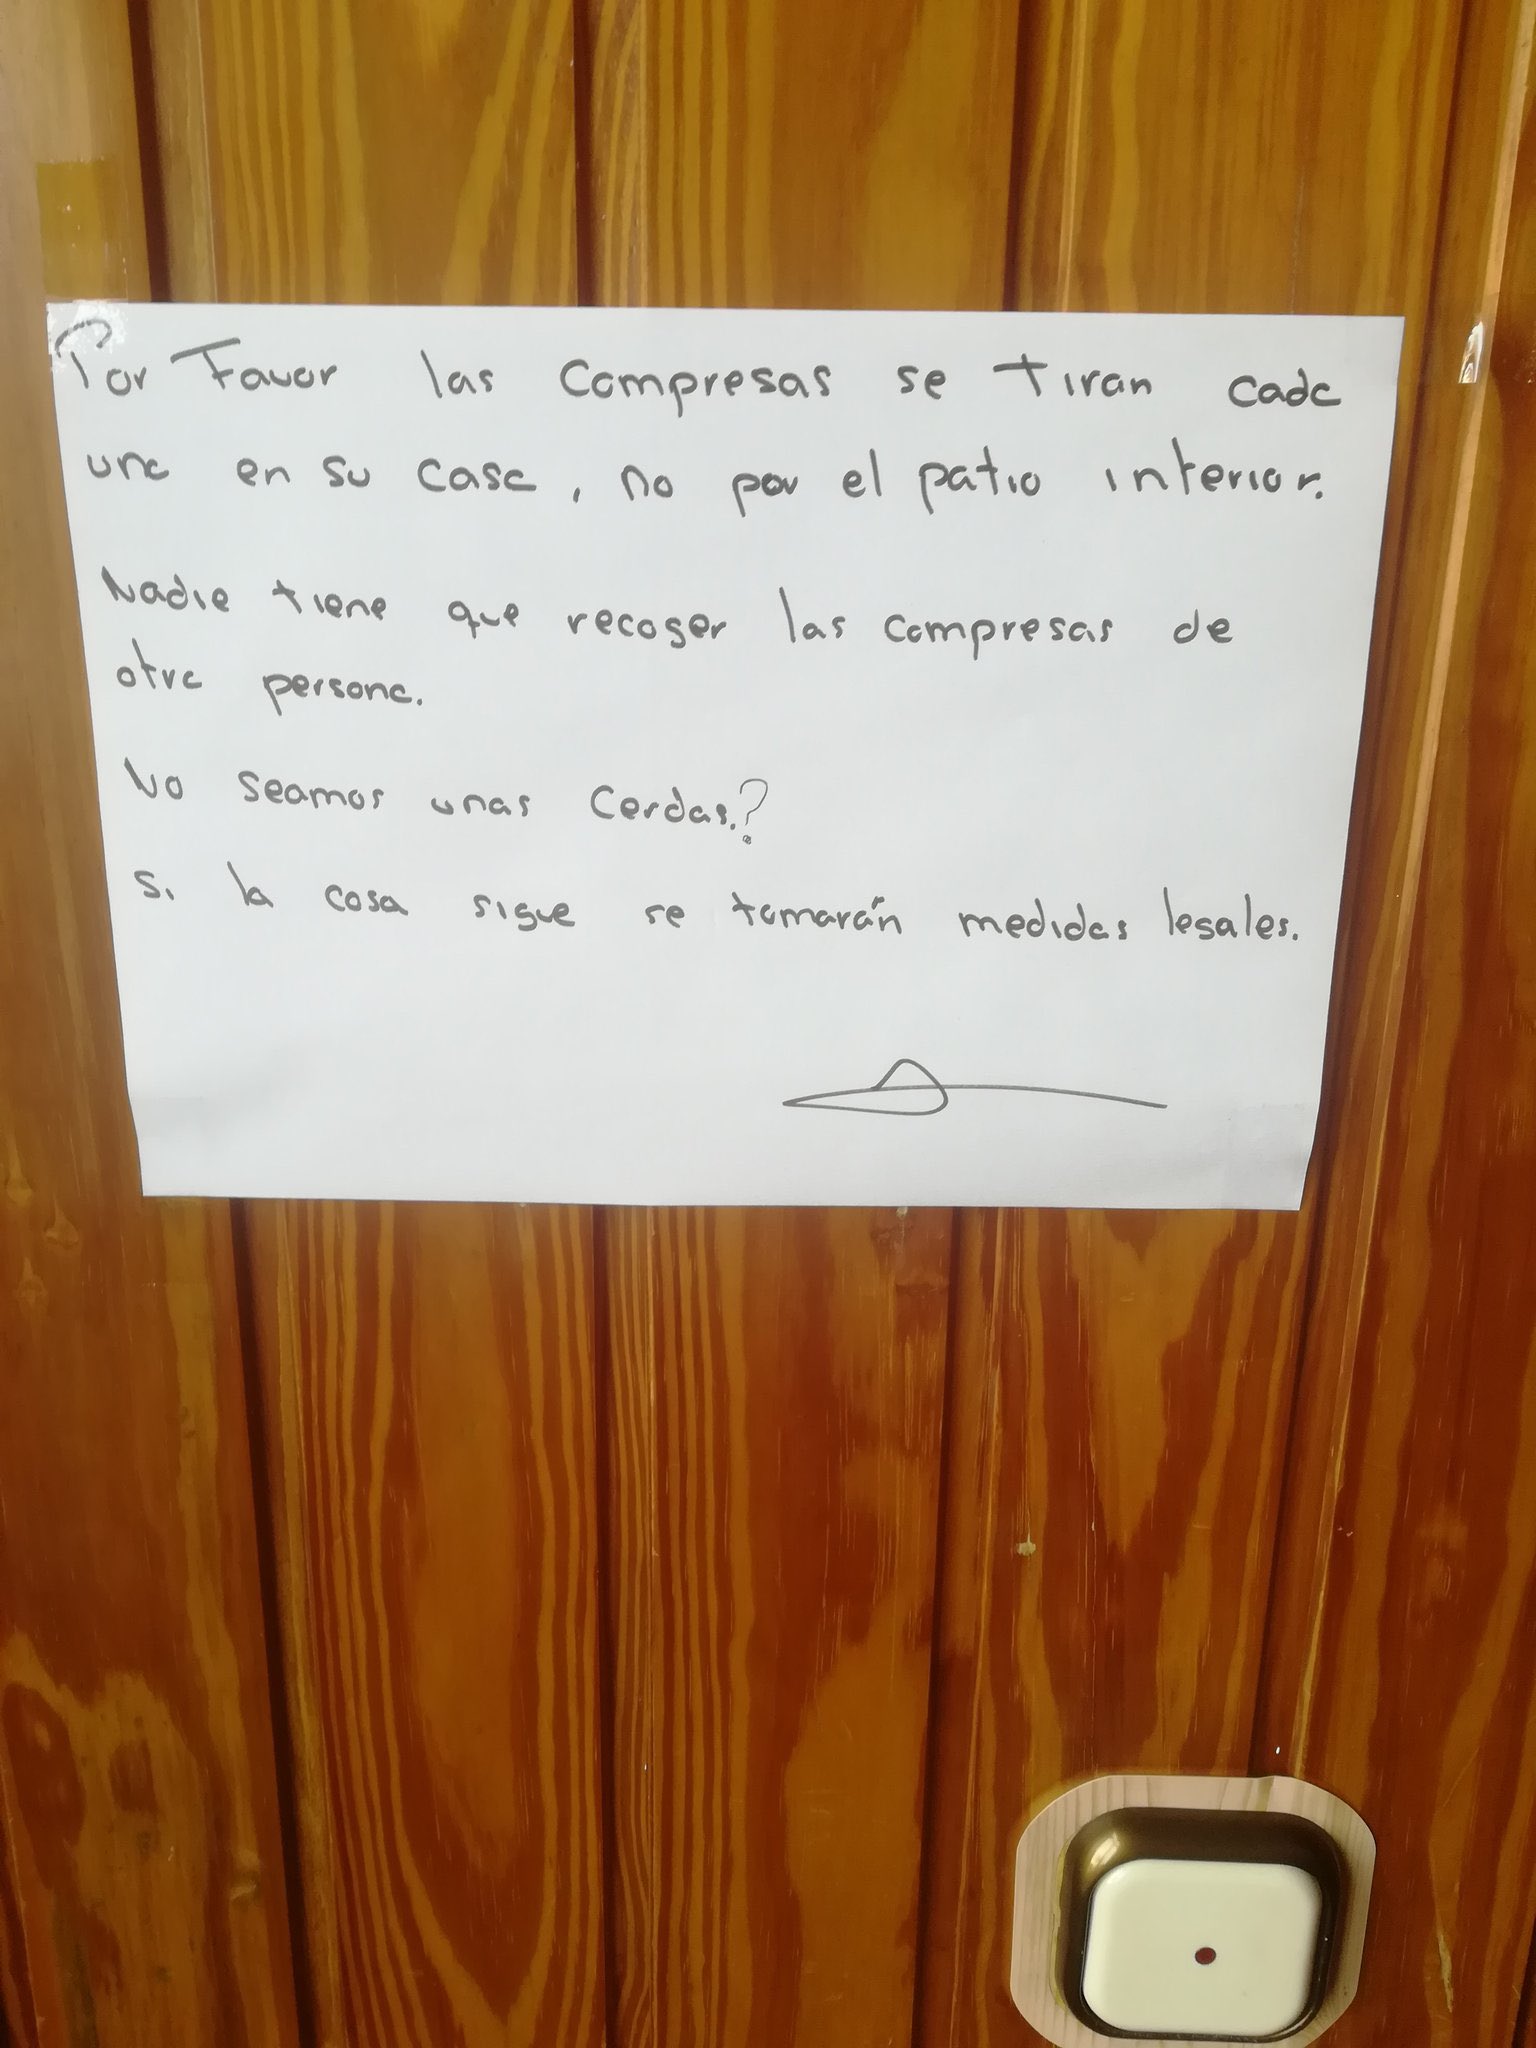 Por Favor las Compresas se tiran cada
una en su casa, no por el patio interior.
Nadie tiene que recoger las compresas de
otra persona.
No seamos unas Cerdas.?
Si la cosa sigue se tomarán medidas legales.